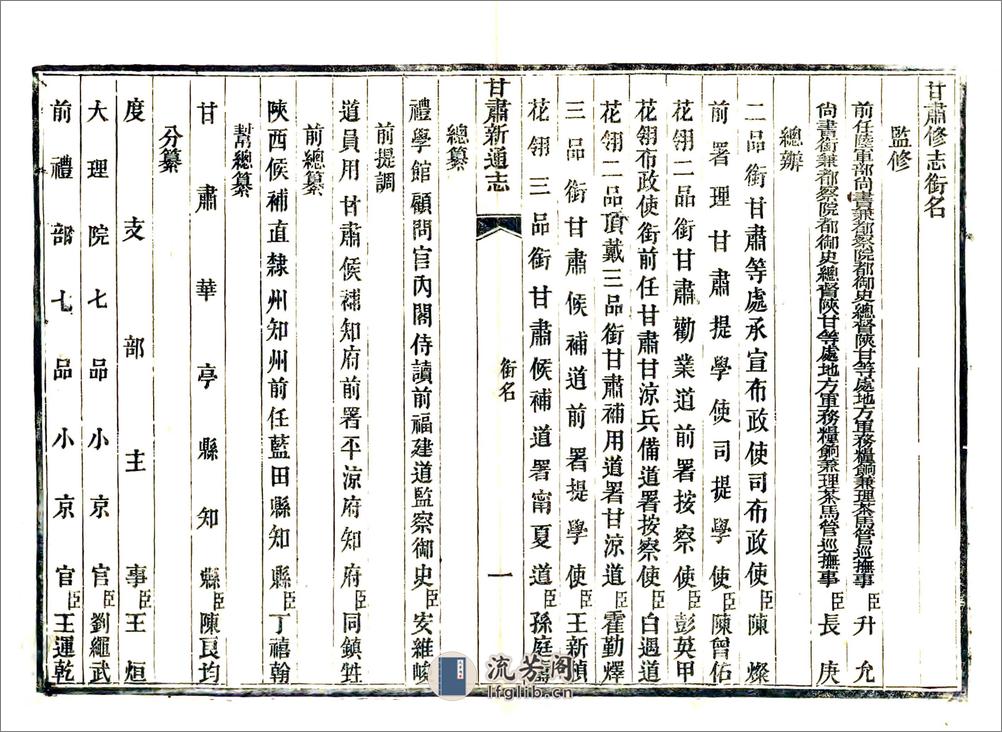 甘肅修志銜名
監修
前任陸軍部尚書兼都察院都御史總督陝甘等處地方軍務糧餉兼理茶馬管巡撫事臣升允
尚書銜兼都察院都御史總督陝甘等處地方軍務糧餉兼理茶馬管巡撫事臣長庚
總辦
二品銜甘肅等處承宣布政使司布政使臣陳燦
前署理甘肅提學使司提學使臣陳曾佑
花翎二品銜甘肅勸業道前署按察使臣彭英甲
花翎布政使銜前任甘肅甘涼兵備道署按察使臣白遇道
花翎二品頂戴三品銜甘肅補用道署甘涼道臣霍勤燡
三品銜甘肅候補道前署提學使臣王新楨
花翎三品銜甘肅候補道署甯夏道臣孫庭壽
甘肅新通志
銜名
一
總纂
禮學館顧問官內閣侍讀前福建道監察御史臣安維峻
前提調
道員用甘肅候補知府前署平涼府知府臣同鎮甡
前總纂
陝西候補直隸州知州前任藍田縣知縣臣丁禧翰
幫總纂
甘肅華亭縣知縣臣陳良均
分纂
度支部主事臣王烜
大理院七品小京官臣劉繩武
前禮部七品小京官臣王運乾
流芳阁
lfglib.cn